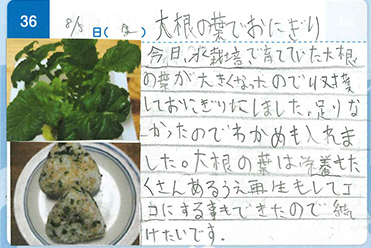 36
8/5日(金)
大根の葉でおにぎり
今日、水栽培で育てていた大根
の葉が大きくなったので収穫
しておにぎりにしました。足りな
かったのでわかめも入れま
した。大根の葉は栄養もた
くさんあるうえ再生もしてエ
コにする事もできたので続
けたいです。